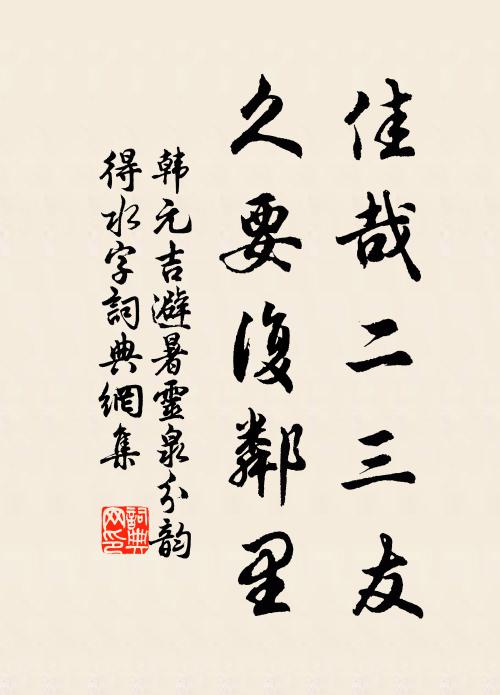 佳哉二三友
久要復鄰里
韩元吉避暑靈泉分韵
得水字詞典網集
詞典
网印